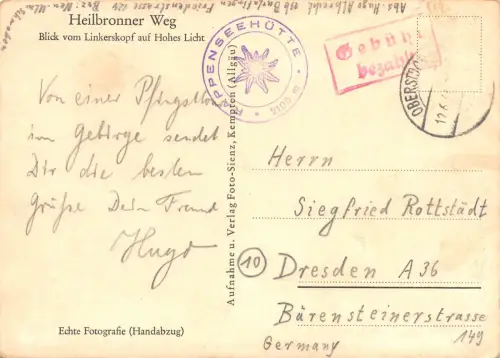 Heilbronner Weg
Blick vom Linkerskopf auf Hohes Licht
Abs. Hugo Albrecht
RAPPENSEEHÜTTE
2100 m
Gebühr
bezahlt
OBERSTDORF
Von einer Pfingsttour
im Gebirge sendet
Dir die besten
Grüße Dein Freund
Hugo
Aufnahme u. Verlag Foto-Sienz, Kempten (Allgäu)
Echte Fotografie (Handabzug)
Herrn
Siegfried Rottstädt
10
Dresden A 36
Bärensteinerstrasse
149
Germany